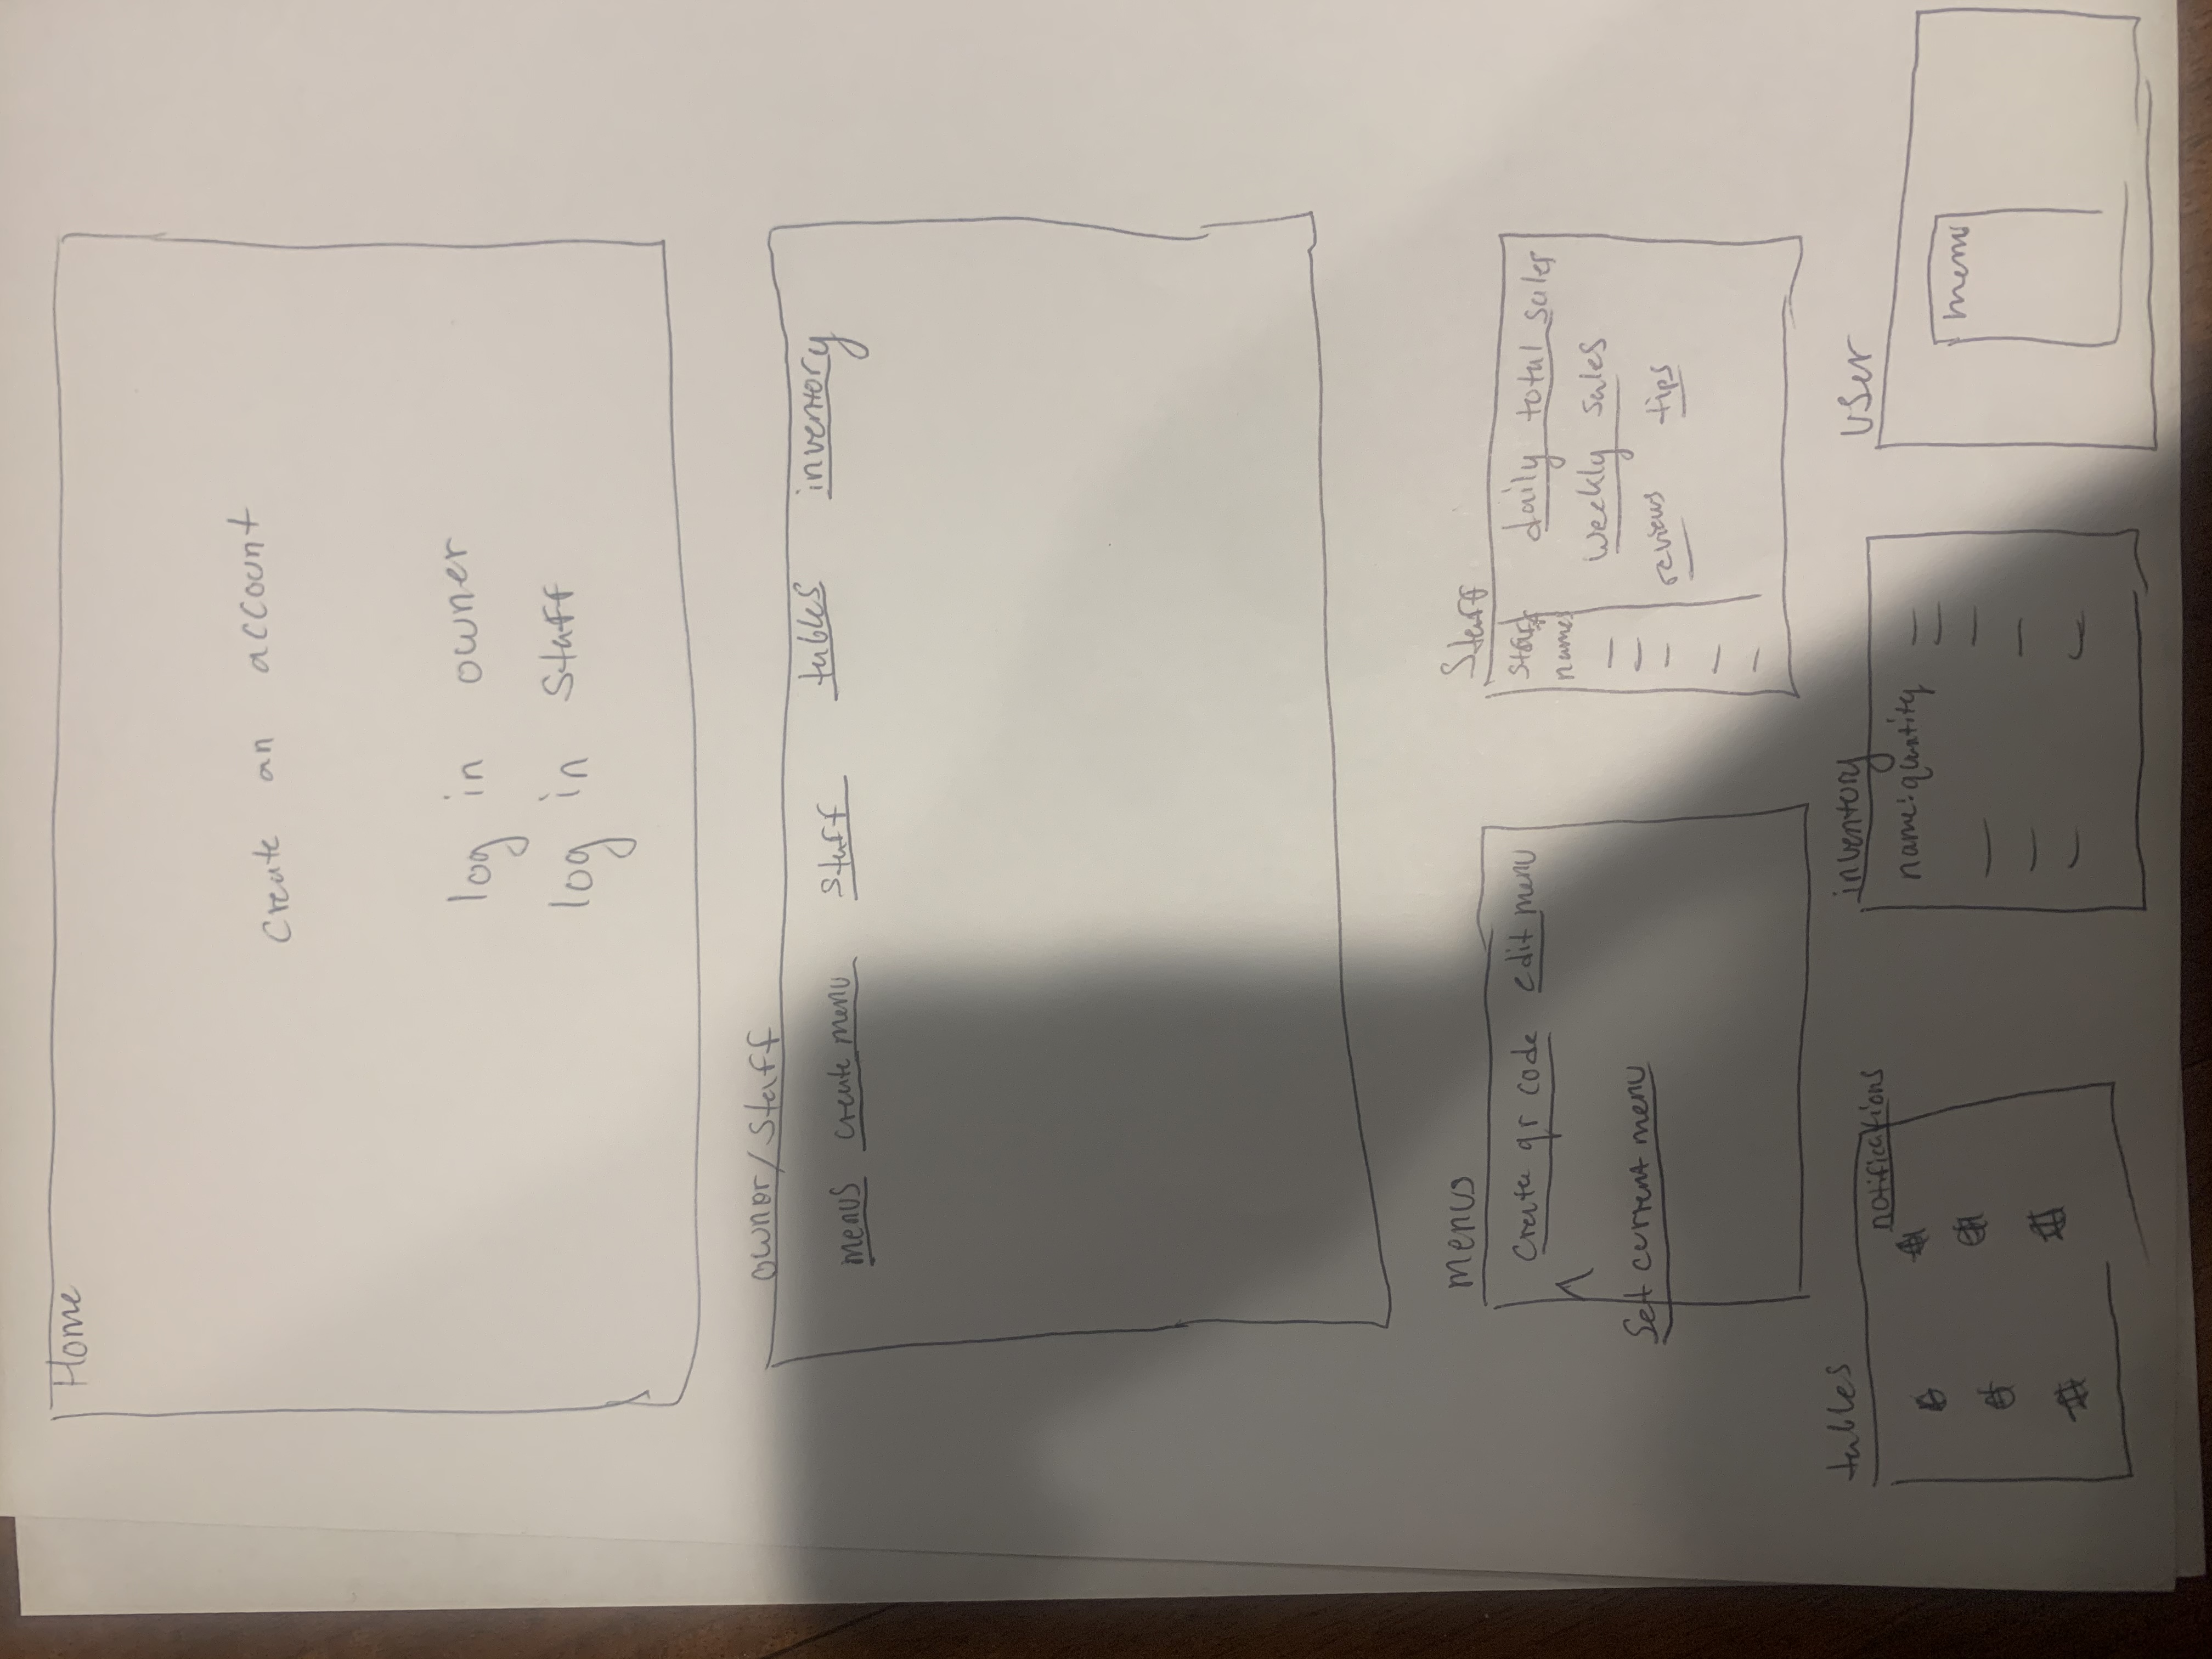 Home
Create an account
log in owner
log in Staff
owner/Staff
menus create menu staff tables inventory
menus
Create qr code edit menu
Set current menu
Staff
staff
names
daily total sales
weekly sales
reviews tips
tables
notifications
inventory
name:quantity
User
menu